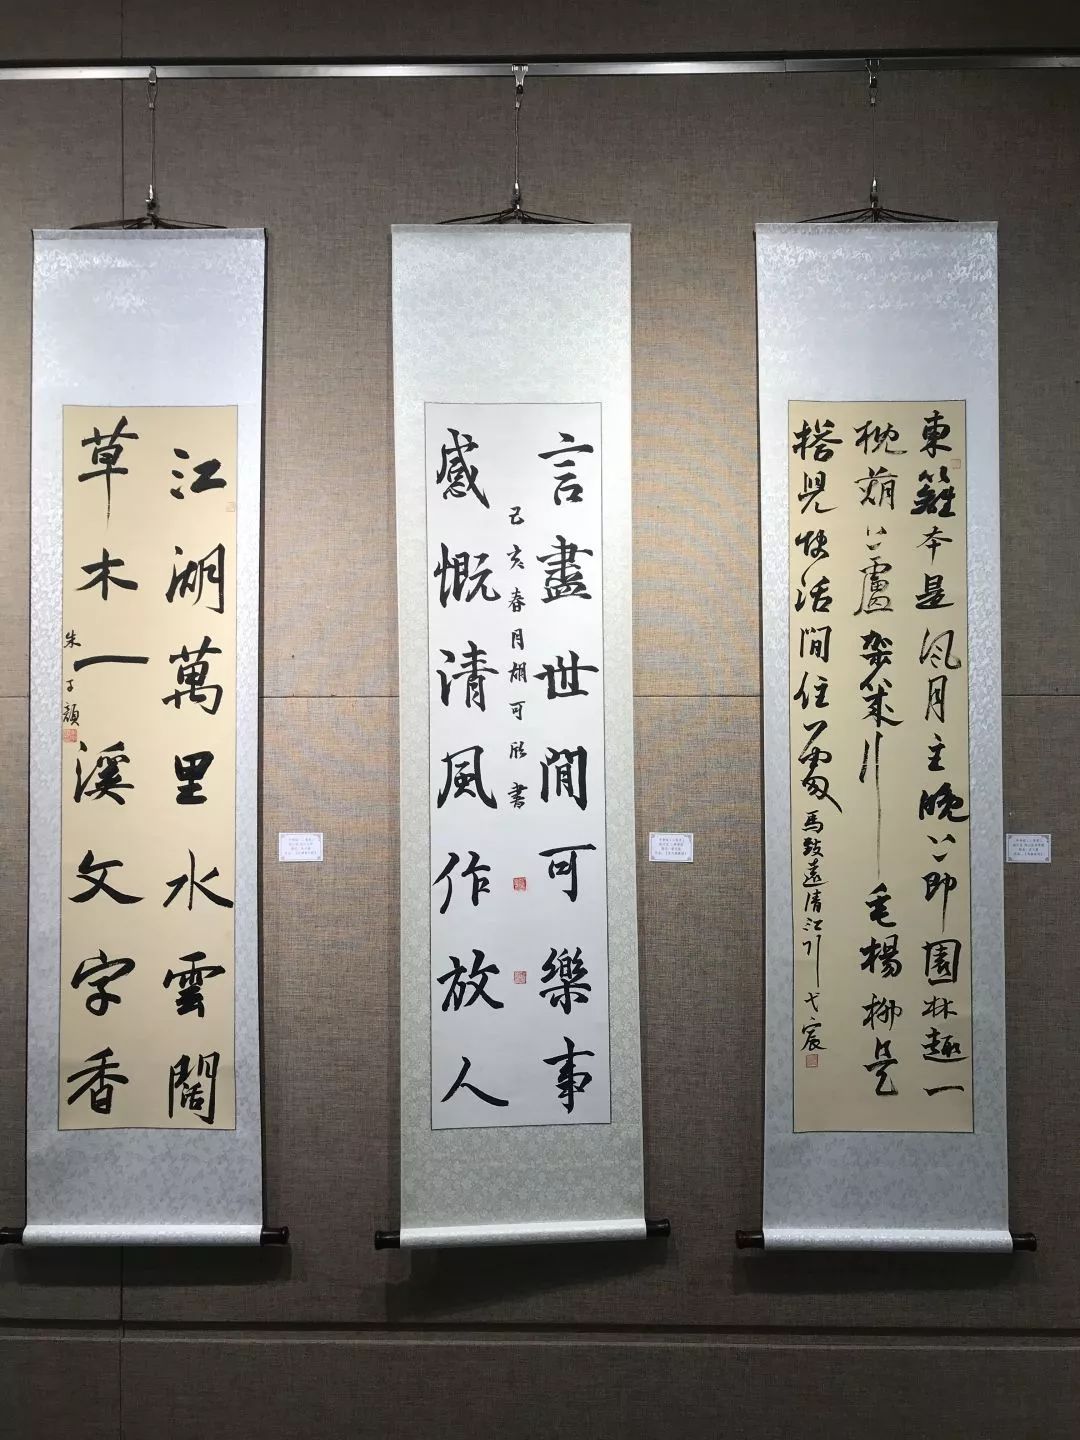 江湖萬里水雲闊
草木一溪文字香
朱子顏
言盡世間可樂事
感慨清風作放人
己亥春月胡可欣書
東籬本是風月主晚節園林趣一
枕葫蘆架幾行垂楊柳是
搭兒快活閒住處馬致遠清江引 弋宸